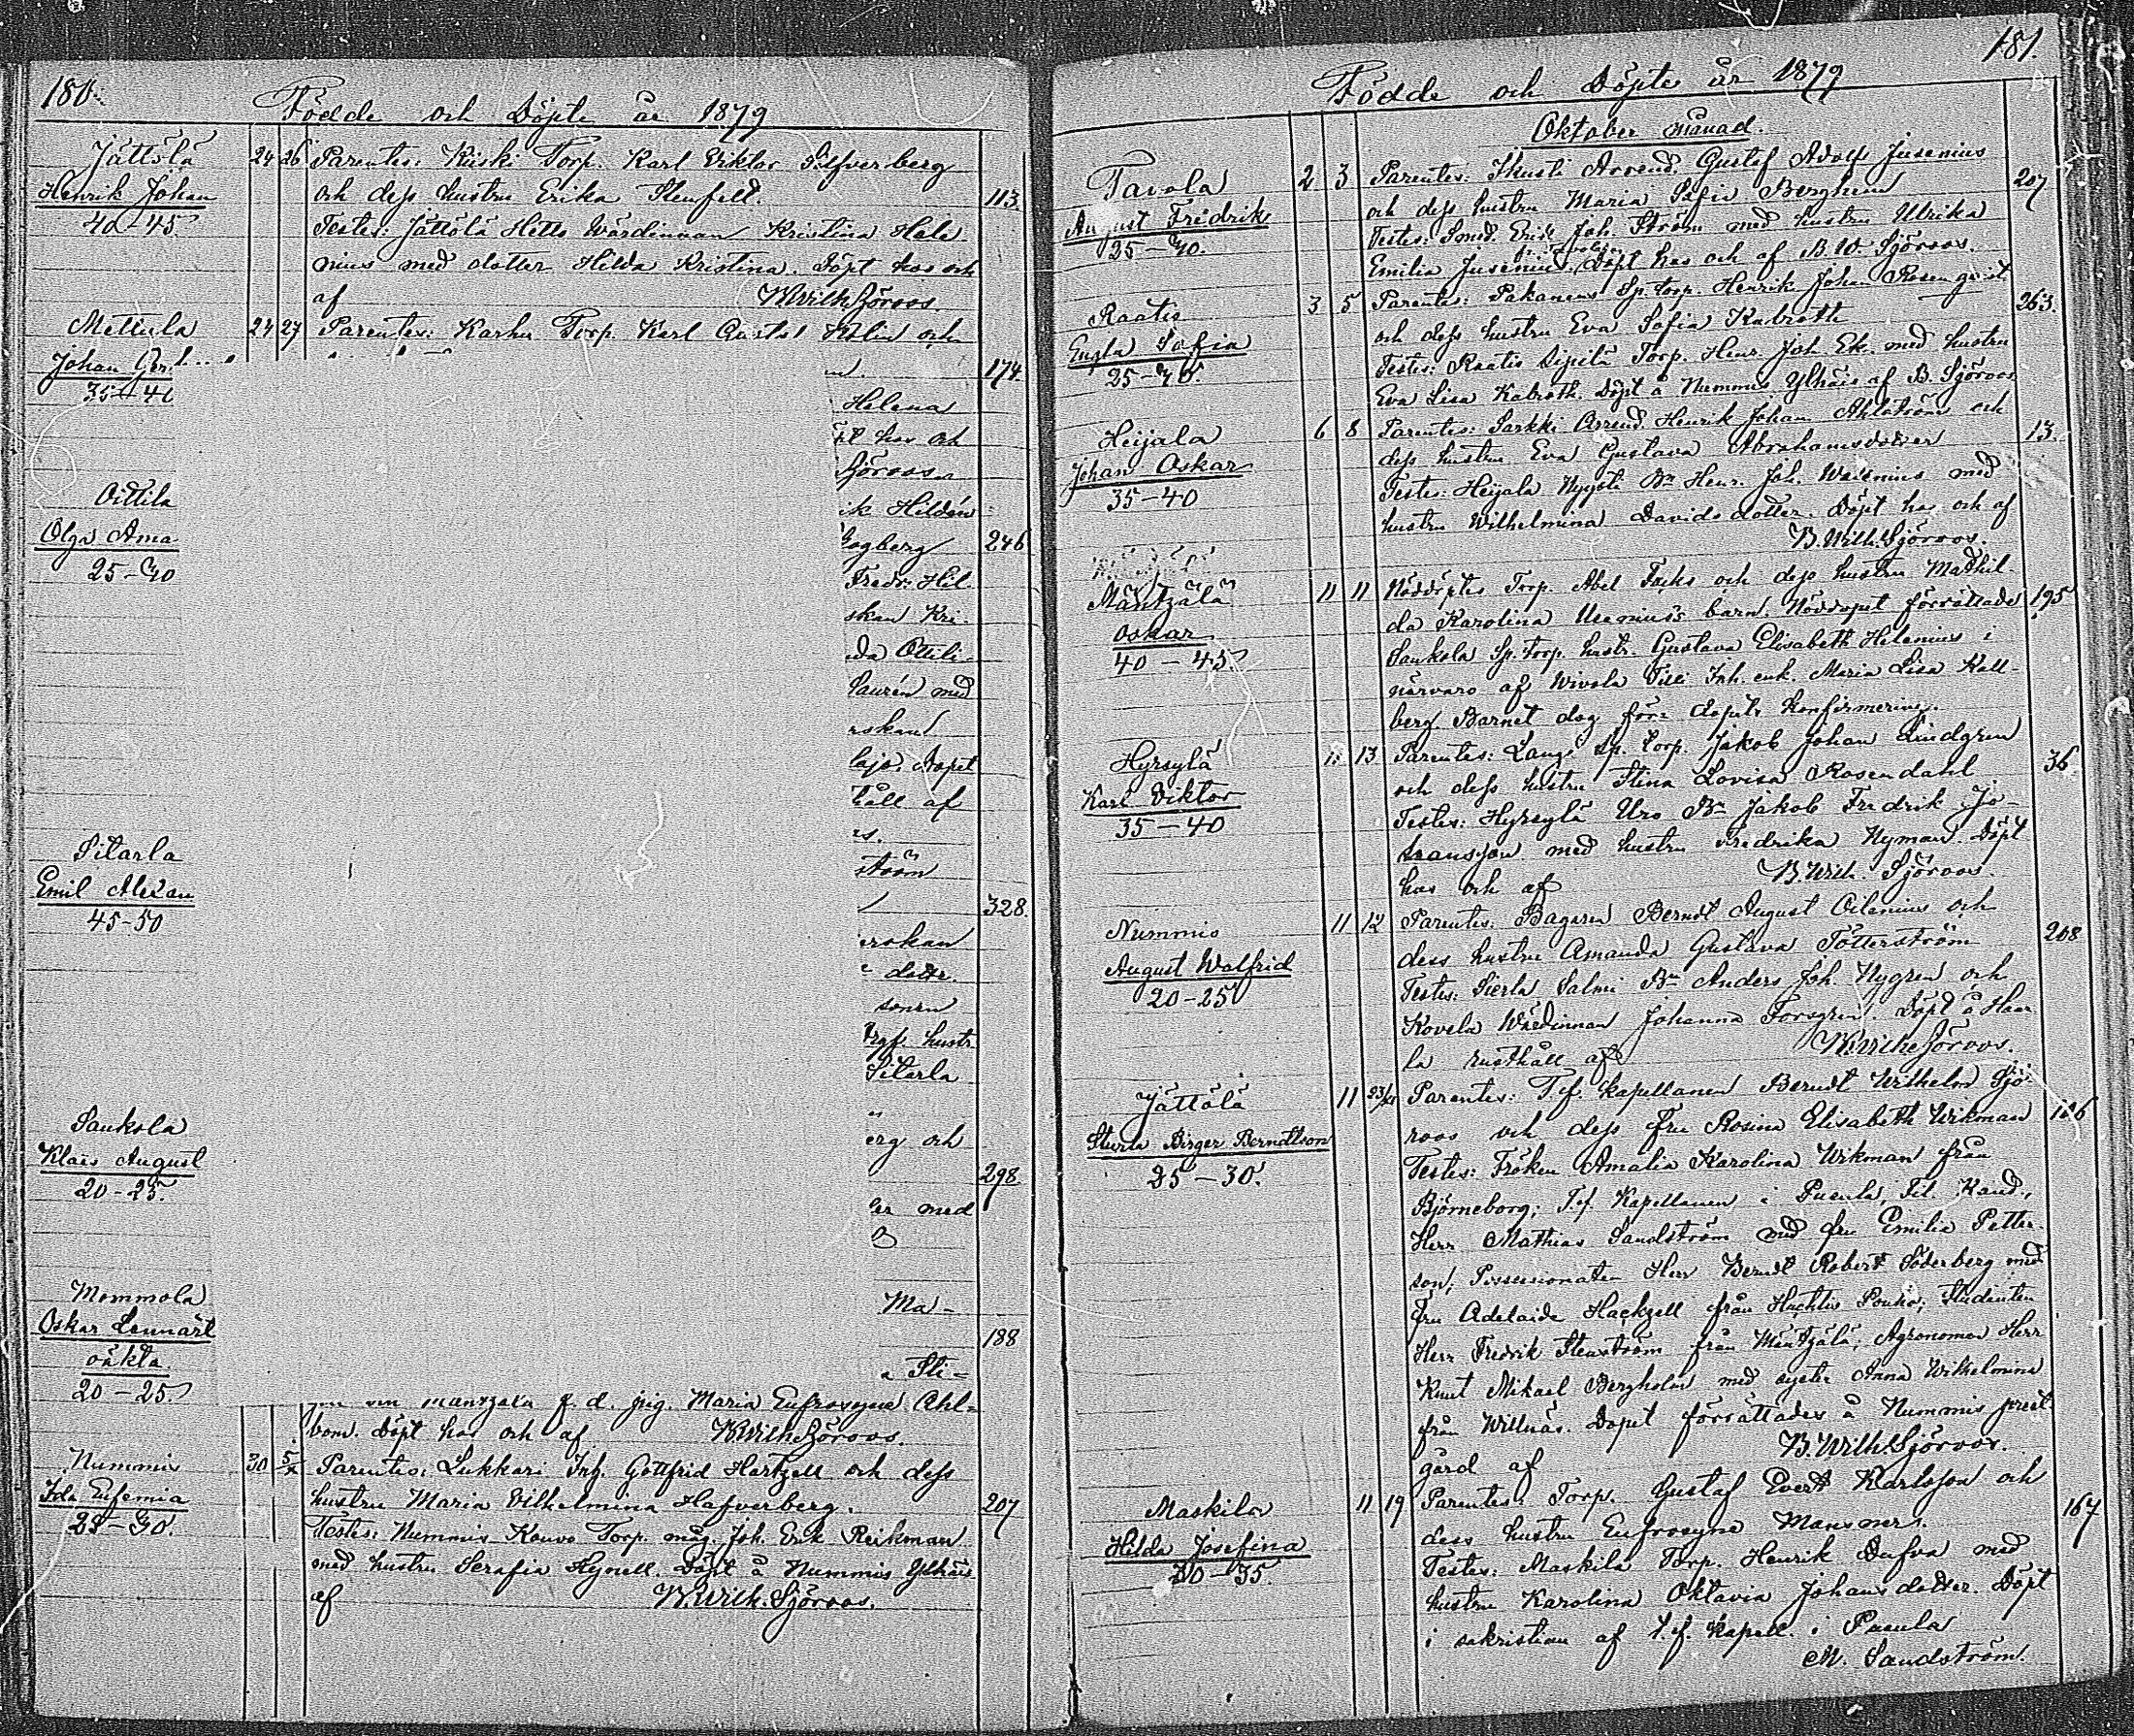 180.
Födde och Döpte år 1879
Jättölä 24 26 Parentes: Kiiski Torp. Karl Viktor Silfverberg
Henrik Johan och dess hustru Erika Stenfelt. 113.
40-45 Testes: Jättölä Hette Wärdinnan Kristina Hele-
nius med dotter Hilda Kristina. Döpt hos och
af B. Wilh. Sjöroos.
Mettula 24 27 Parentes: Karhu Torp. Karl Gustaf Holin och
Johan 174.
35-40
Helena
hos och
Sjöroos.
Oittila ik Hildén
Olga Ama 246
25-30 Fredr. Hil-
skan Kri-
da Ottili-
Laurén med
rskan
Döpt
håll af
rs.
Sitarla ström
Emil Alexan
45-50 328.
erskan
dottr.
sonen
hustr.
Sitarla
Saukola erg och
Klaës August
20-25. 298.
er med
Mommola Ma-
Oskar Lennart 188
oäkta a Sti-
20-25 Mäntzälä f. d. pig. Maria Eufrosyne Ahl-
bom. Döpt hos och af B. Wilh. Sjöroos.
Nummis 30 5/X Parentes: Lukkari Inh. Gottfrid Hartzell och dess
Ida Eufemia hustru Maria Vilhelmina Hafverberg. 207
25-30. Testes: Nummis Kouvo Torp. måg Joh. Erik Reikman
med hustru Serafia Hynell. Döpt å Nummis Ylhäis
af B. Wilh. Sjöroos.
181.
Födde och Döpte år 1879
Oktober månad.
Tavola 2 3 Parentes: Skusti Arrend. Gustaf Adolf Jusenius
August Fredrik och dess hustru Maria Sofia Berghem 207
25-30. Testes: Smed. Erik Joh. Ström med hustru Ulrika
Emilia Jusenius. Döpt hos och af B. W. Sjöroos.
Raatis 3 5 Parentes: Pakanens Sp. torp. Henrik Johan Rosenqvist
Engla Sofia och dess hustru Eva Sofia Kabroth 263.
25-30. Testes: Raatis Sipilä Torp. Henr. Joh. Ek. med hustru
Eva Lisa Kabroth. Döpt å Nummis Ylhäis af B. Sjöroos
Heijala 6 8 Parentes: Sarkki Arrend. Henrik Johan Ahlström och
Johan Oskar dess hustru Eva Gustava Abrahamsdotter 13.
35-40 Testes: Heijala Nyysti Bn Henr. Joh. Walenius med
hustru Wilhelmina Davidsdotter. Döpt hos och af
B. Wilh. Sjöroos.
Mäntzälä 11 11 Nöddöptes Torp. Abel Fochs och dess hustru Mathil-
Oskar da Karolina barn. Nöddopet förrättades 195
40-45. Saukola Sp. torp. hustr. Gustava Elisabeth Helenius i
närvaro af Wivola Tilli Inh. enk. Maria Lisa Kall-
berg. Barnet dog före dopets konfirmering.
Hyrsylä 11 13 Parentes: Lange Sp. torp. Jakob Johan Lindgren
Karl Viktor och dess hustru Stina Lovisa Rosendahl 36.
35-40 Testes: Hyrsylä Uro Bn Jakob Fredrik Jo-
hansson med hustru Fredrika Nyman. Döpt
hos och af B. Wilh. Sjöroos.
Nummis 11 12 Parentes: Bagaren Berndt August Oilenius och
August Walfrid dess hustru Amanda Gustava Pötterström 208
20-25 Testes: Sierla Salmi Bn Anders Joh. Nygren och
Kovela Wärdinnan Johanna Forsgren. Döpt å Haar-
la rusthåll af B. Wilh. Sjöroos.
Jättölä 11 23/XI Parentes: T.f. kapellanen Berndt Wilhelm Sjö-
Sturla Birger Berndtson roos och dess fru Rosina Elisabeth Wikman 186
25-30. Testes: Fröken Amalia Karolina Wikman från
Björneborg; T.f. Kapellanen i Pusula, Fil. Kand.,
Herr Mathias Sandström med fru Emilia Petter-
son; Possessionaten Herr Berndt Robert Söderberg med
fru Adelaide Hackzell från Huchtis Pouko; Studenten
Herr Fredrik Stenström från Mäntzälä; Agronomen Herr
Knut Mikael Bergholm med syster Anna Wilhelmina
från Willnäs. Dopet förrättades å Nummis prest-
gård af B. Wilh. Sjöroos.
Maskila 11 19 Parentes: Torp. Gustaf Evert Karlsson och
Hilda Josefina dess hustru Eufrosyne Mansners. 167
30-35. Testes: Maskila Torp. Henrik Dufva med
hustru Karolina Oktavia Johansdotter. Döpt
i sakristian af t.f. kapell. i Pusula
M. Sandström.